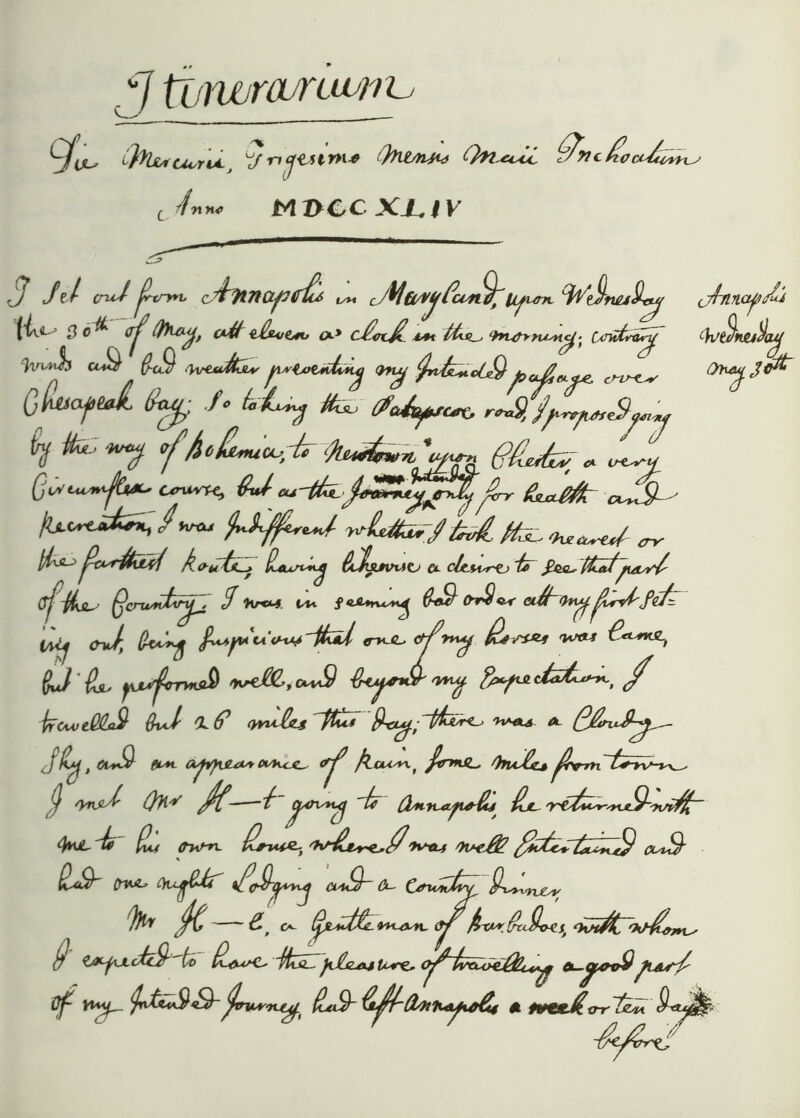 Itinerarium
Die Mercurii, Trigesimo Mensis Maii Inchoatum
Anno MDCCXLIV
I Set out from Annapolis in Maryland, upon Wednesday
the 30th of May, att eleven a clock in the morning; contrary
winds and bad weather preventing my intended passage over
Chesapeak bay; so taking the Patapscoe road, I proposed going
by the way of Bohemia, to Newtown upon Chester, a very
Circumflex course, but as the Journey was intended only for health and
Recreation, I was Indifferent whether I took the nearest or
the farthest Route, having likewise a desire to see that part
of the Country. I was in seeming bad order att my first set-
ing out, being suspicious that one of my horses was lame,
but he performed well, and beyond my Expectation, I
travelled but 26 miles this day; there was a Cloudy
sky, and an appearance of Rain, some miles from town
I met Mr H—t going to Annapolis, he returned with
me to his own house, where I was well Entertained and
had one nights Lodging and a Country dinner
Mr H—l, a Gentleman of Barbadoes, with whom
I expected to have the pleasure of travelling a good part
of my Intended Journey, had left Annapolis a week or ten days
before
Annapolis
Wednesday
May 30th